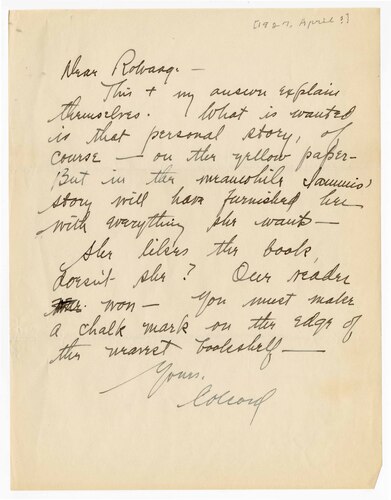 [1927, April ?]
Dear Rolvaag: —
This + my answer explain
themselves. What is wanted
is that personal story, of
course — on the yellow paper-
But in the meanwhile Jammis'
story will have furnished her
with everything she wants —
She likes the book,
doesn't she? Our reader
won — You must make
a chalk mark on the edge of
the nearest bookshelf —
Yours,
Colcord